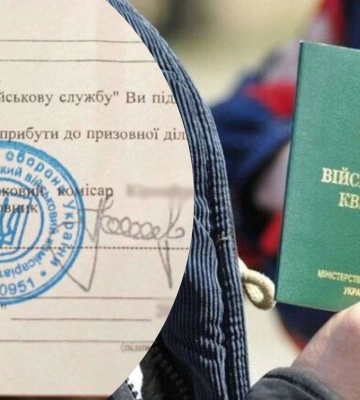 йськову службу" Ви під
прибути до призовної діл
ковий комісар
овник
оборони України
0951
ВІЙС
КВ
МІНІСТЕРСТ
УКРА